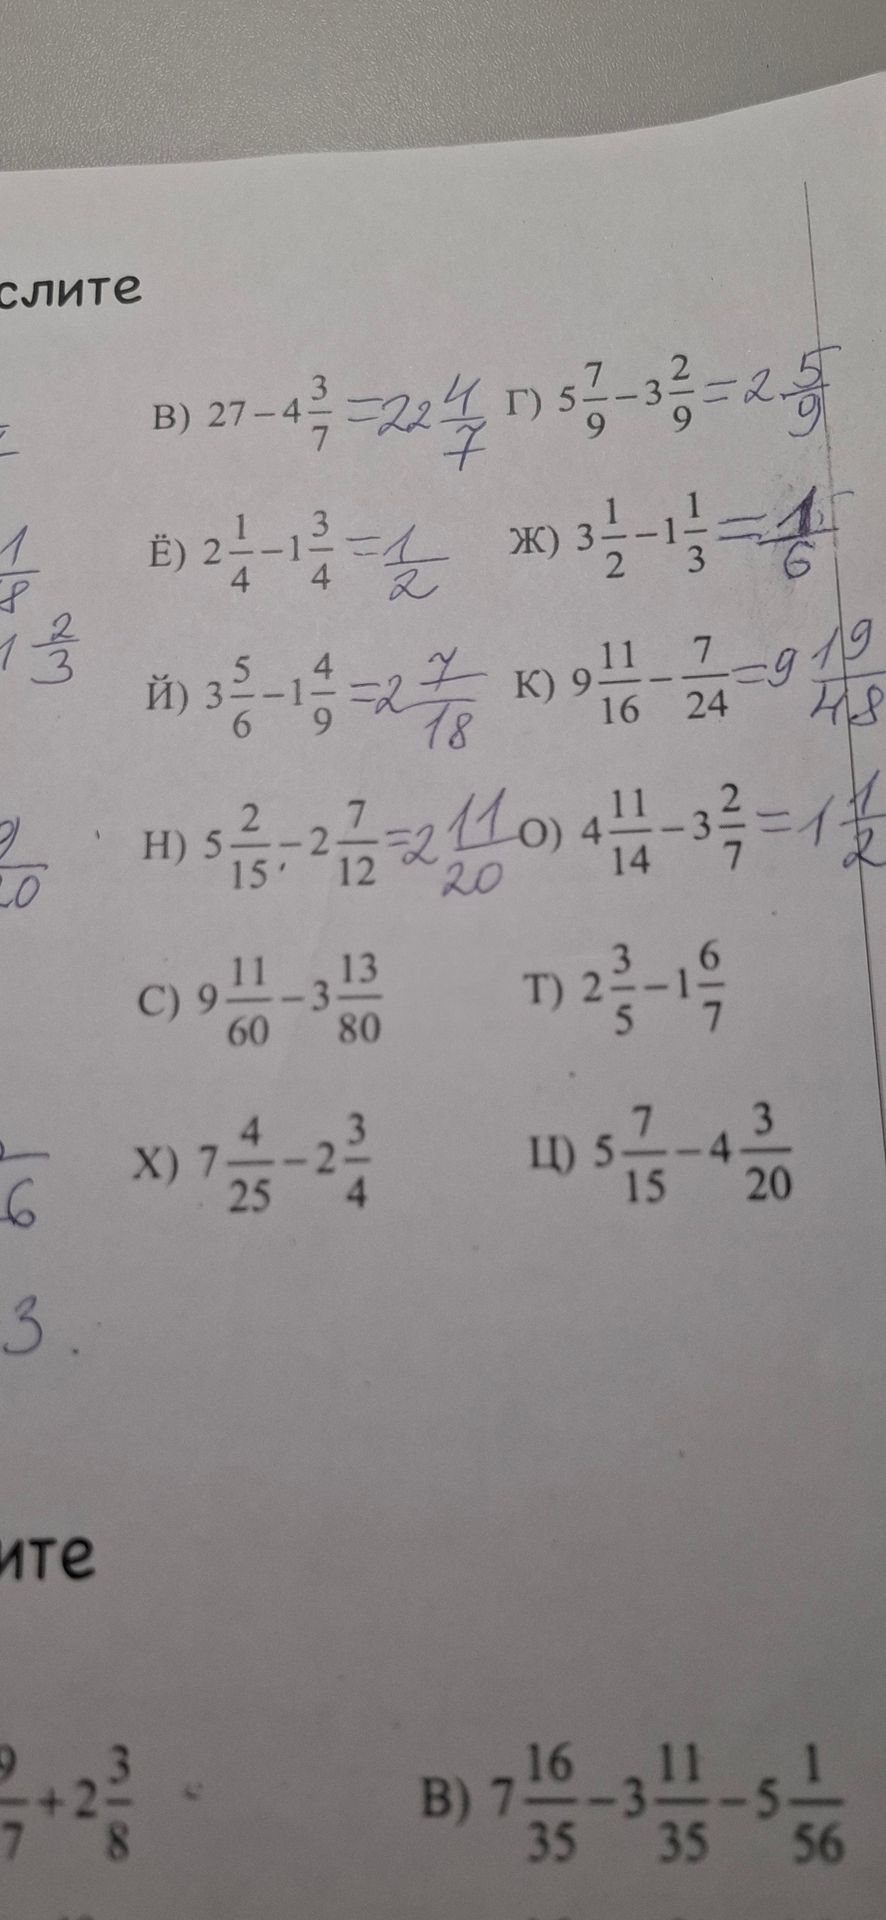 слите
В) 27 − 4 3/7 = 22 4/7 Г) 5 7/9 − 3 2/9 = 2 5/9
1/8 Ё) 2 1/4 − 1 3/4 = 1/2 Ж) 3 1/2 − 1 1/3 = 1/6
1 2/3 Й) 3 5/6 − 1 4/9 = 2 7/18 К) 9 11/16 − 7/24 = 9 19/48
Н) 5 2/15 − 2 7/12 = 2 11/20 О) 4 11/14 − 3 2/7 = 1 1/2
С) 9 11/60 − 3 13/80 Т) 2 3/5 − 1 6/7
Х) 7 4/25 − 2 3/4 Ц) 5 7/15 − 4 3/20
3.
ите
9/7 + 2 3/8 В) 7 16/35 − 3 11/35 − 5 1/56